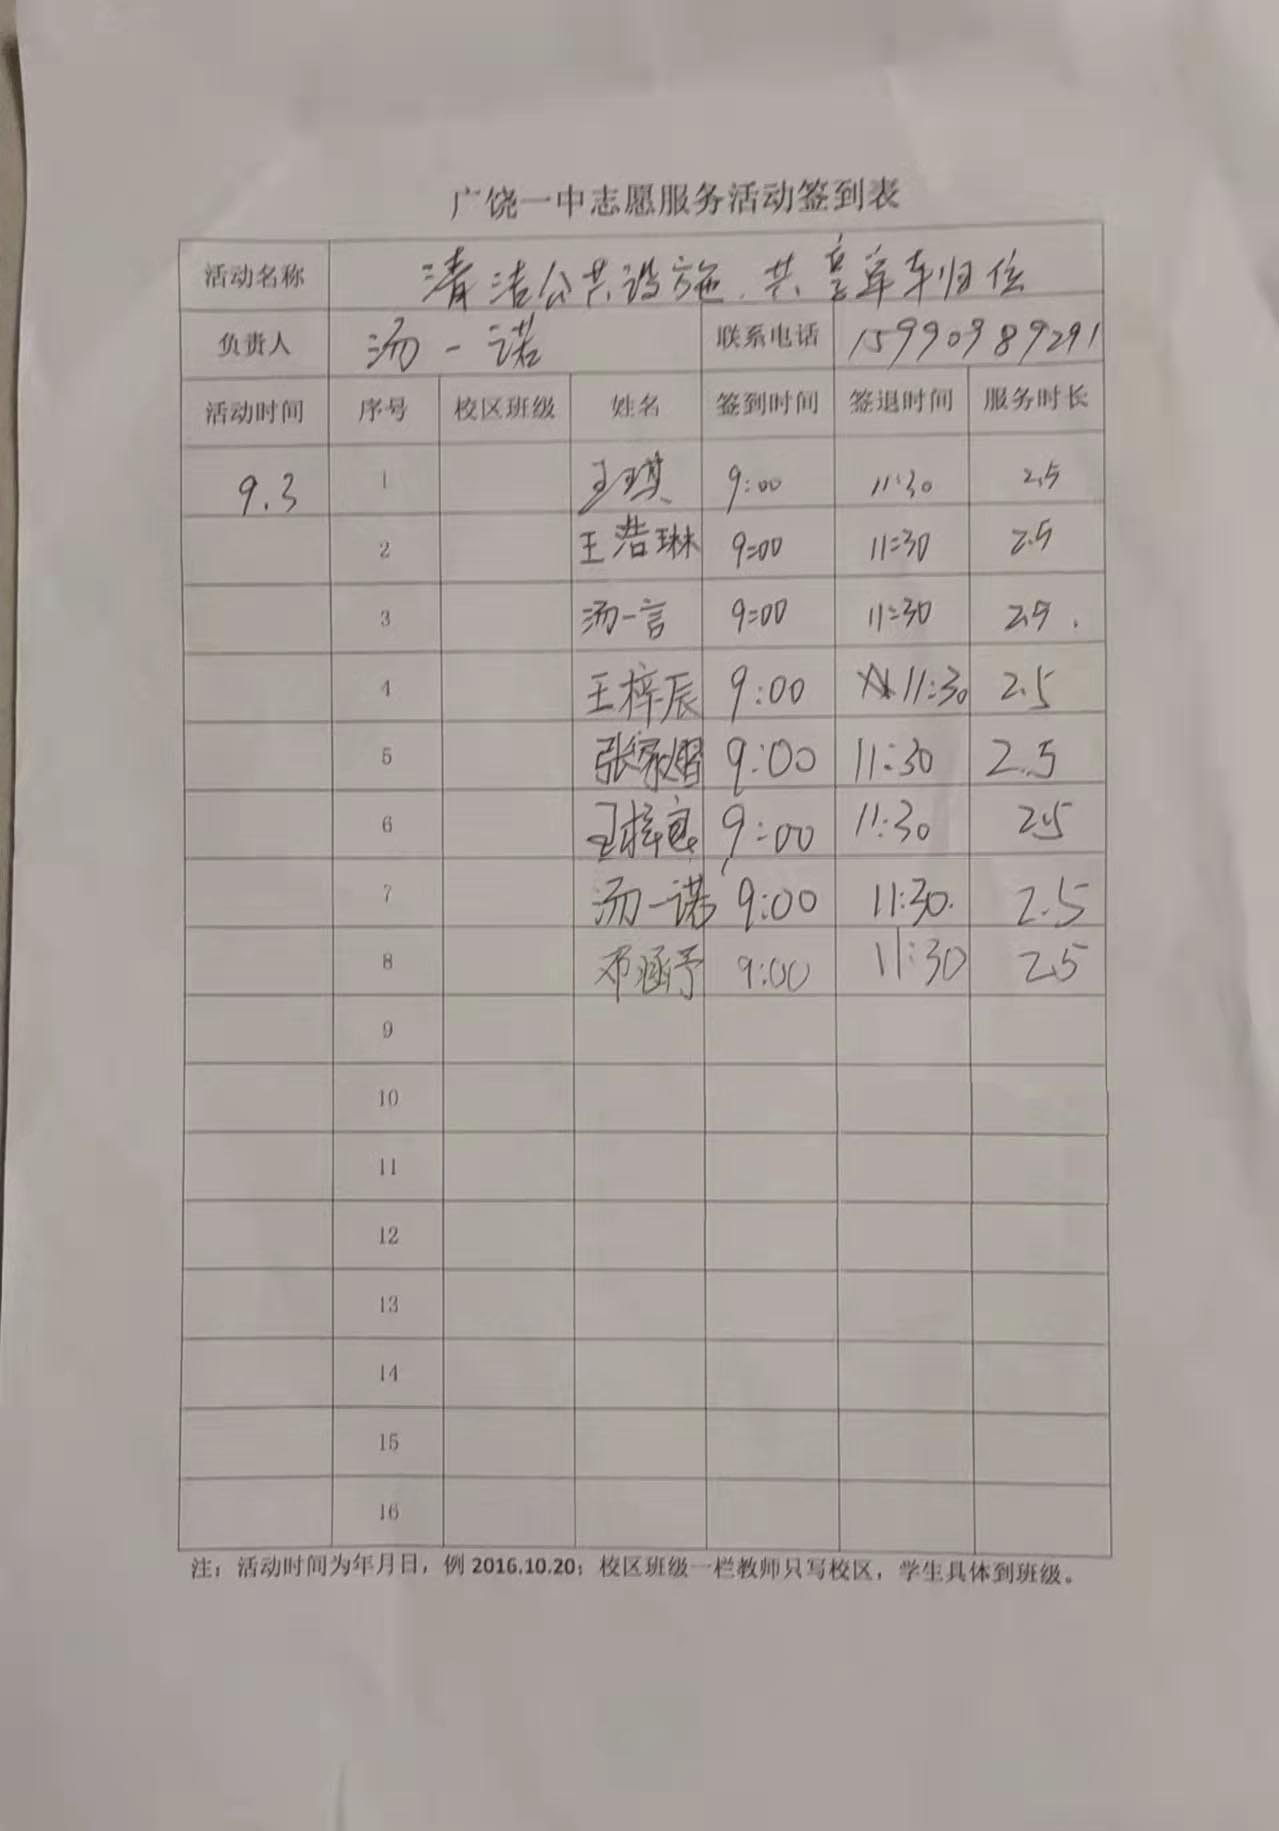 广饶一中志愿服务活动签到表
活动名称 清洁公共设施、共享单车归位
负责人 汤一诺 联系电话 15990989291
活动时间 序号 校区班级 姓名 签到时间 签退时间 服务时长
9.3 1 王琪 9:00 11:30 2.5
2 王浩琳 9:00 11:30 2.5
3 汤一言 9:00 11:30 2.5
4 王梓辰 9:00 11:30 2.5
5 9:00 11:30 2.5
6 9:00 11:30 2.5
7 汤一诺 9:00 11:30 2.5
8 邓涵予 9:00 11:30 2.5
9
10
11
12
13
14
15
16
注：活动时间为年月日，例 2016.10.20；校区班级一栏教师只写校区，学生具体到班级。